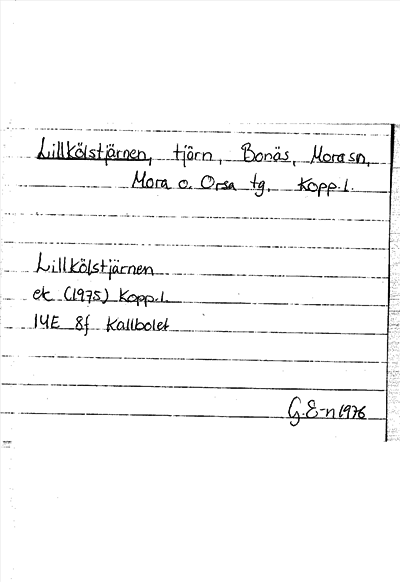 Lillkölstjärnen, tjärn, Bonäs, Mora sn,
Mora o. Orsa tg, Kopp.l.
Lillkölstjärnen
ek (1975) Kopp.l.
14E 8f Kallbolet
G.E-n 1976